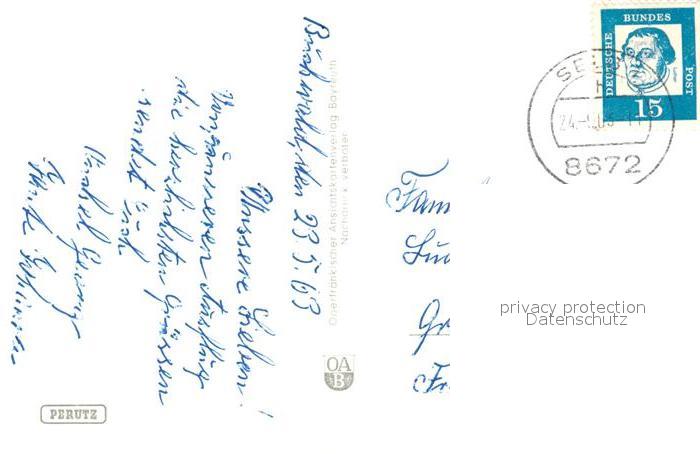 Buchwald, den 23.5.63
Unsere Lieben!
Von unserem Ausflug
die herzlichsten Grüssen
sendet Euch
Oberfränkischer Ansichtskartenverlag Bayreuth
Nachdruck verboten
OA
B
PERUTZ
DEUTSCHE
BUNDES
POST
15
SELB
24.-5.63-11
8672
Fam
Lu
Gr
Fr
privacy protection
Datenschutz